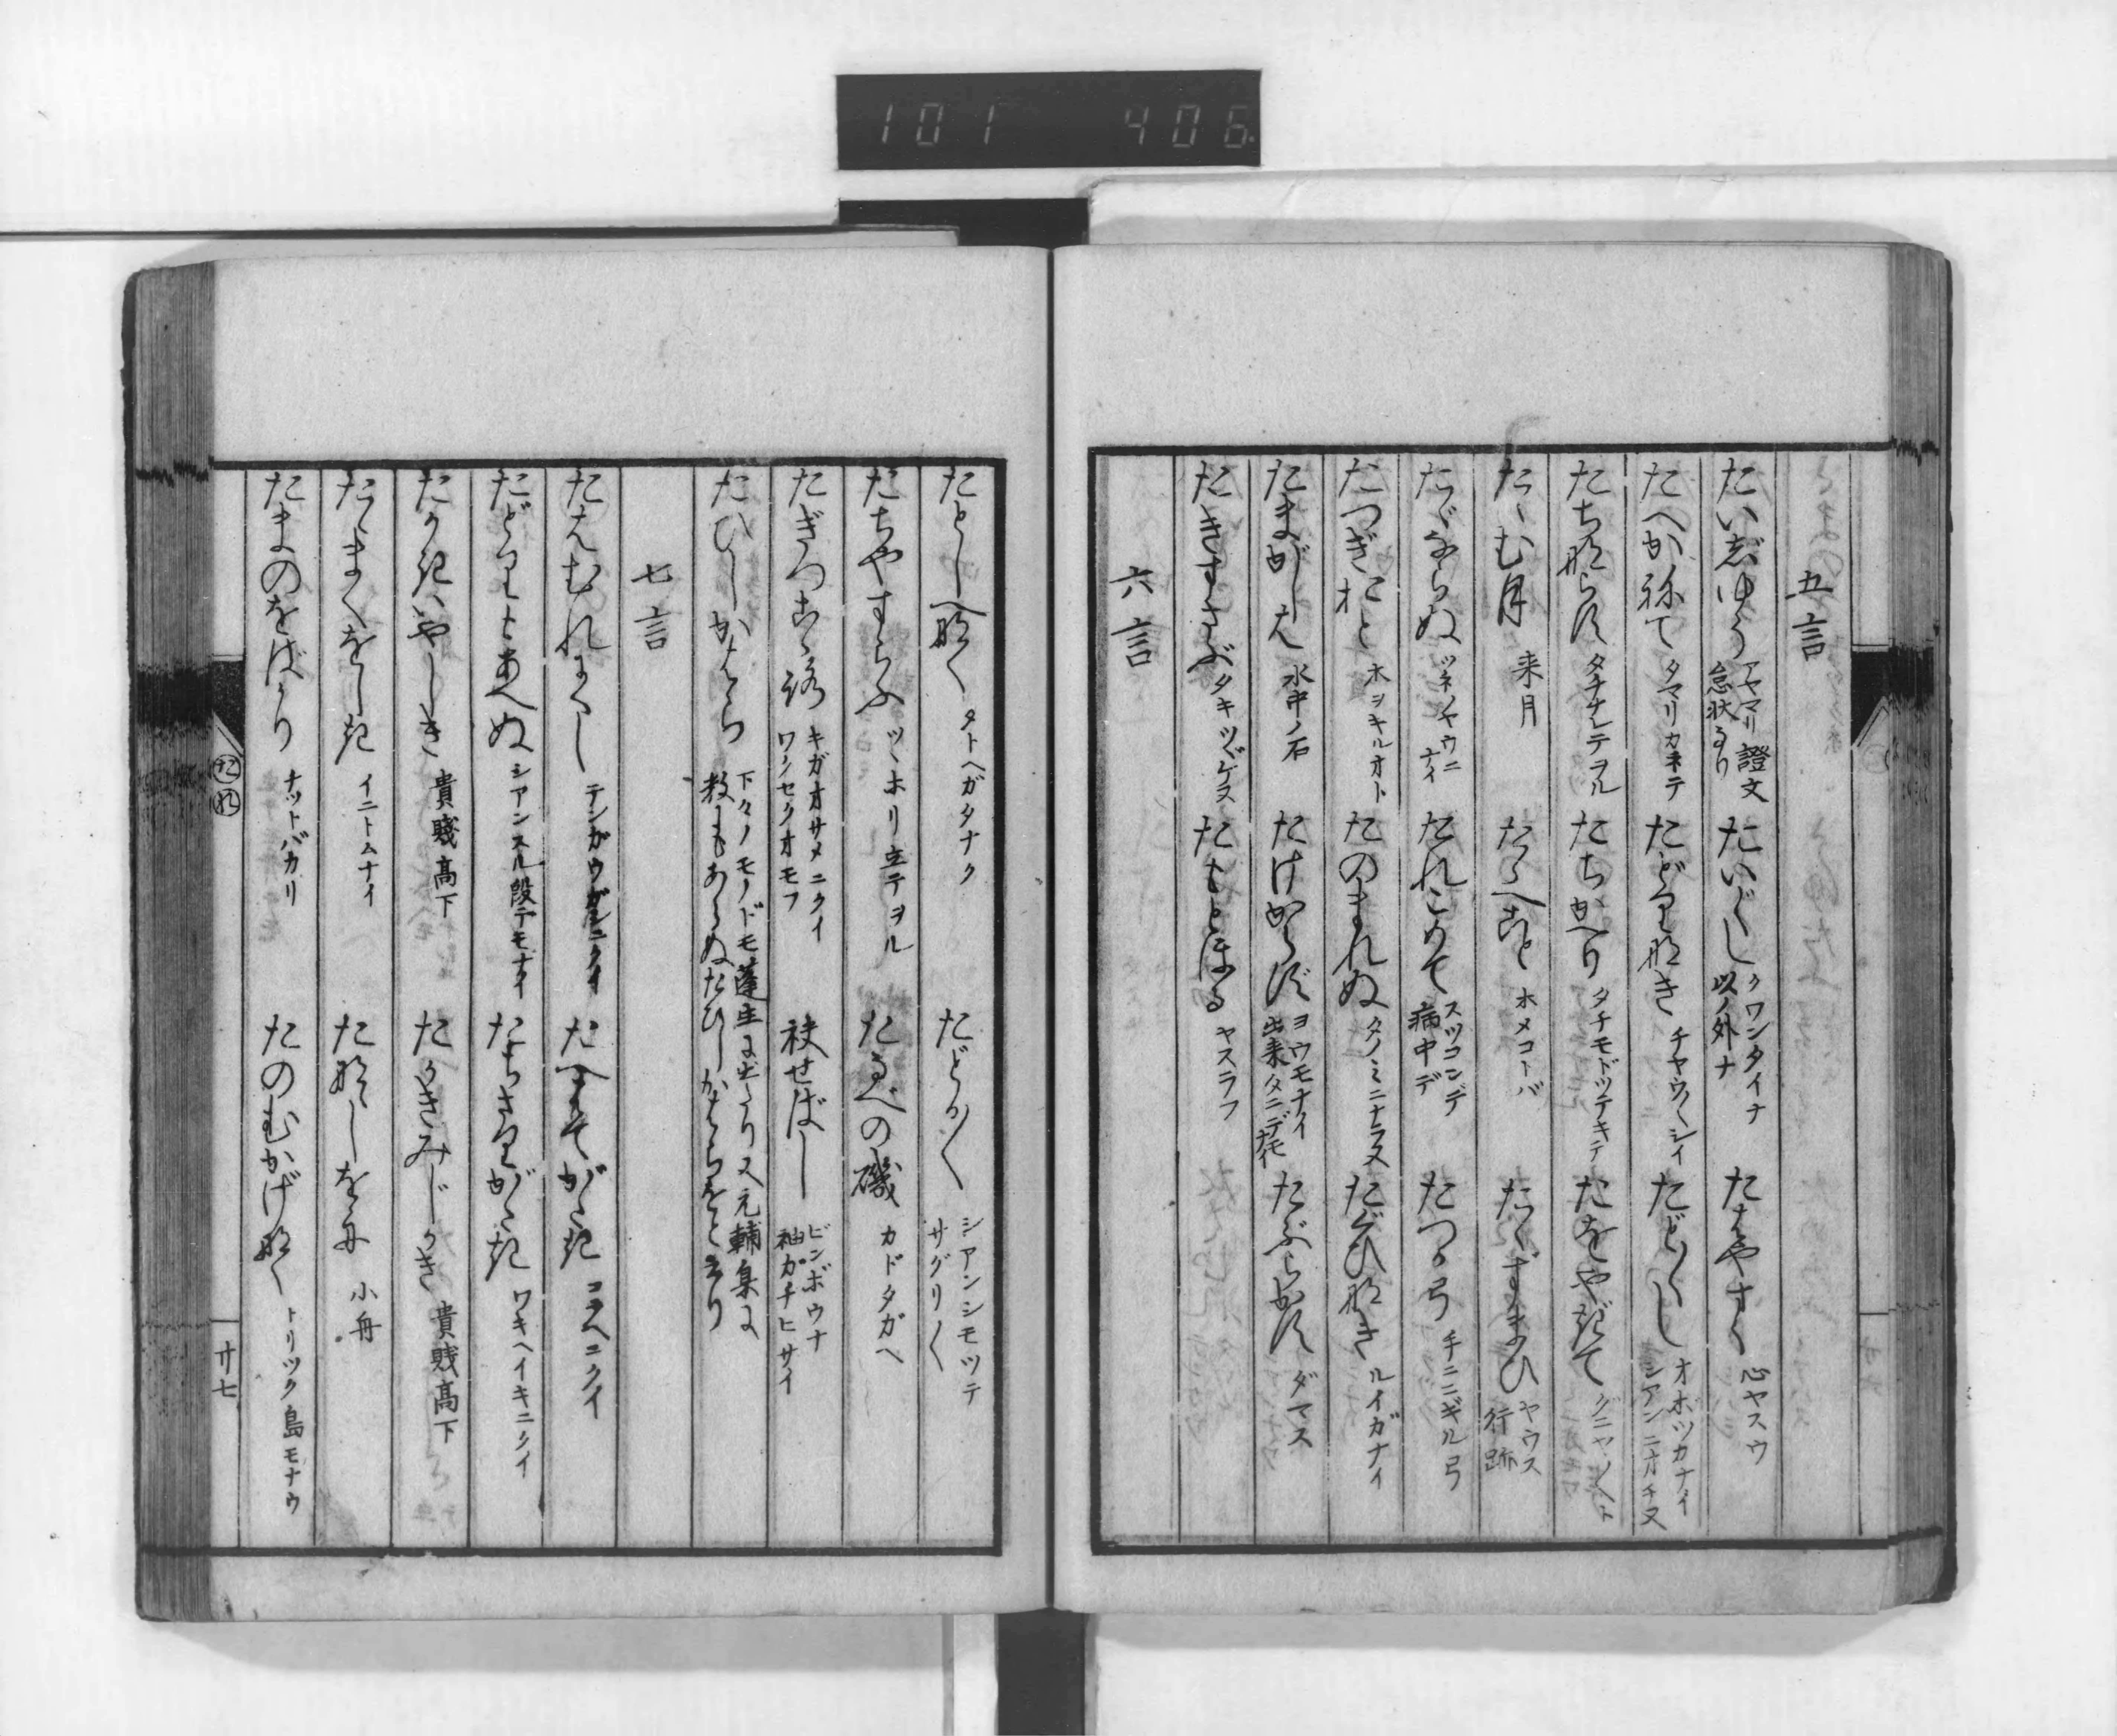 101 406
五言
たいぢゆう アヤマリ證文 怠状なり たい〴〵し クワンタイナ 以ノ外ナ たはやすく 心ヤスウ
たへかねて タマリカネテ たどりなき たど〳〵し オボツカナイ シアンニオチヌ
たちならす タチナレテヲル たちかへり タチモドツテキテ たをやぎて グニヤ〳〵ト
たゝむ月 来月 たゝへこと ホメコトバ たゝずまひ ヤウス 行跡
たゞならぬ ツネノヤウニナイ たれこめて スツコンデ 病中デ たつか弓 手ニニギル弓
たつぎおと 木ヲキルオト たのまれぬ タノミニナラヌ たぐひなき ルイガナイ
たまがしは 水中ノ石 たけからず ヨウモナイ たぶらかす ダマス
たきすさぶ タキツヾケス たちもとほる ヤスラフ
六言
たとしへなく タトヘガタナク たどる〳〵 シアンシモツテ サグリ〳〵
たちやすらふ ツヽホリ立テヲル たるべの磯 カドタガヘ
たぎつこゝろ キガオサメニクイ ワクセクオモフ 袂せばし ビンボウナ 袖ガチヒサイ
たひしかはら 下々ノモノドモ 蓬生に出たり又元輔集に 数にもあらぬたひしかはらをとよめり
七言
たはむれにくし テンガウガシニクイ たへまてがたき コタヘニクイ
たどりもあへぬ シアンスル段デモナイ たちさりがたき ワキヘイキニクイ
たかきいやしき 貴賤高下 たかきみじかき 貴賤高下
たゝまくをしき イニトムナイ たなゝしをぶね 小舟
たまのをばかり チツトバカリ たのむかげなく トリツク島モナウ
た れ
廿七